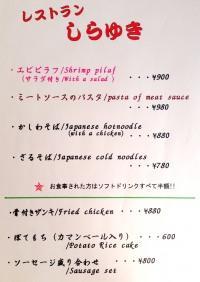 レストラン
しらゆき
・エビピラフ/Shrimp pilaf
(サラダ付き/With a salad) ・・・¥900
・ミートソースのパスタ/pasta of meat sauce
・・・¥980
・かしわそば/Japanese hotnoodle
(with a chicken) ・・・¥880
・ざるそば/Japanese cold noodles
・・・¥780
☆ お食事された方はソフトドリンクすべて半額!!
・骨付きザンギ/Fried chicken ・・・¥880
・ぽてもち(カマンベール入り) ・・・600
/Potato Rice cake
・ソーセージ盛り合わせ ・・・¥800
/Sausage set